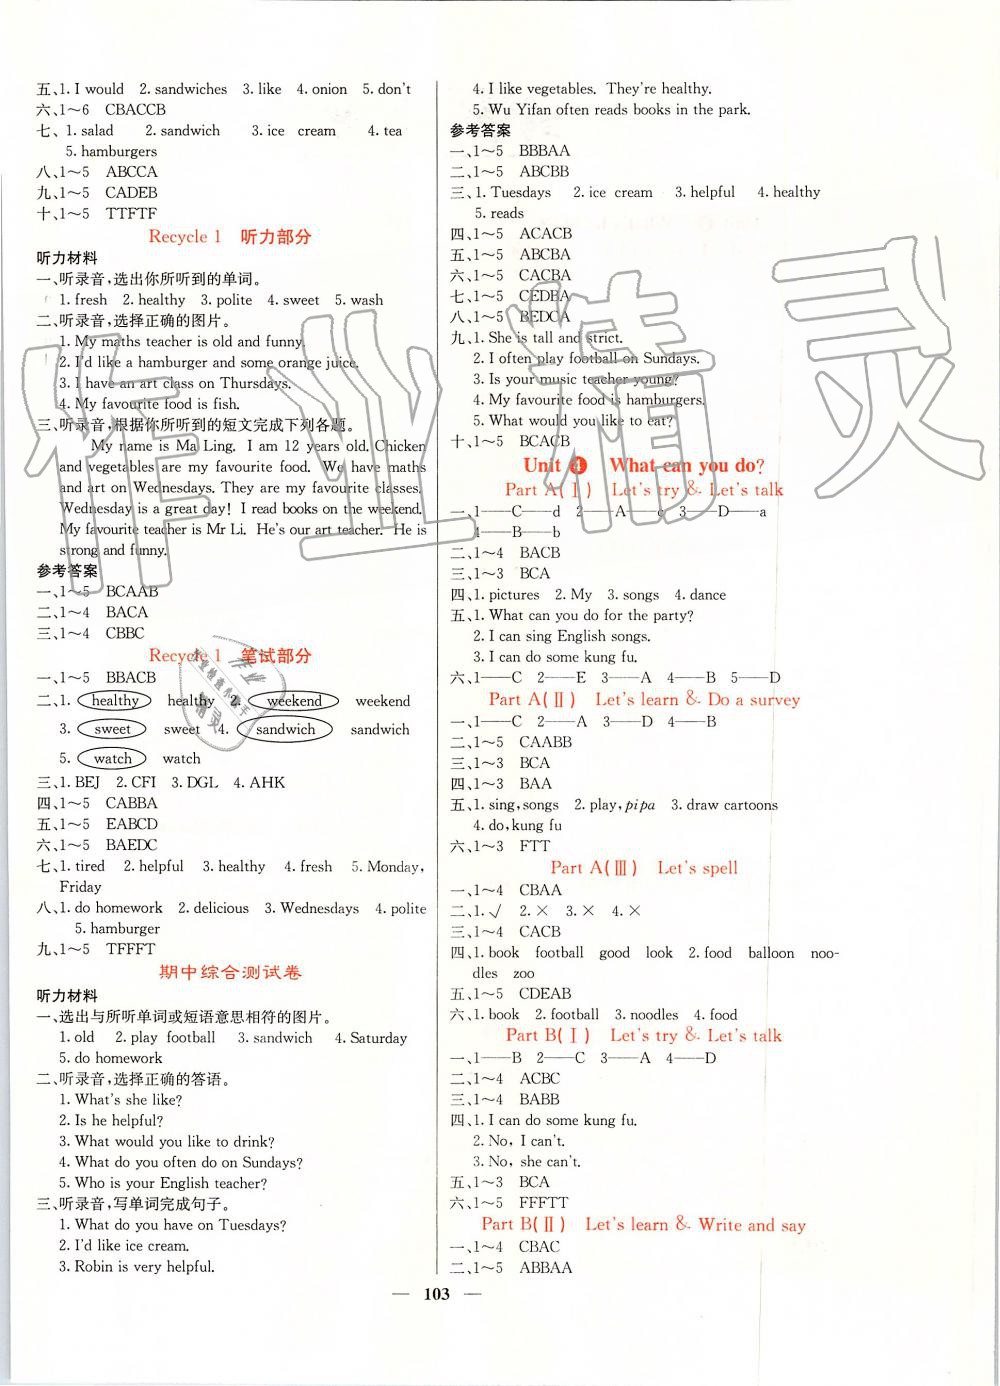 五、1. I would 2. sandwiches 3. like 4. onion 5. don't
六、1～6 CBACCB
七、1. salad 2. sandwich 3. ice cream 4. tea
5. hamburgers
八、1～5 ABCCA
九、1～5 CADEB
十、1～5 TTFTF
Recycle 1 听力部分
听力材料
一、听录音,选出你所听到的单词。
1. fresh 2. healthy 3. polite 4. sweet 5. wash
二、听录音,选择正确的图片。
1. My maths teacher is old and funny.
2. I'd like a hamburger and some orange juice.
3. I have an art class on Thursdays.
4. My favourite food is fish.
三、听录音,根据你所听到的短文完成下列各题。
My name is Ma Ling. I am 12 years old. Chicken
and vegetables are my favourite food. We have maths
and art on Wednesdays. They are my favourite classes.
Wednesday is a great day! I read books on the weekend.
My favourite teacher is Mr Li. He's our art teacher. He is
strong and funny.
参考答案
一、1～5 BCAAB
二、1～4 BACA
三、1～4 CBBC
Recycle 1 笔试部分
一、1～5 BBACB
二、1. healthy healthy 2. weekend weekend
3. sweet sweet 4. sandwich sandwich
5. watch watch
三、1. BEJ 2. CFI 3. DGL 4. AHK
四、1～5 CABBA
五、1～5 EABCD
六、1～5 BAEDC
七、1. tired 2. helpful 3. healthy 4. fresh 5. Monday,
Friday
八、1. do homework 2. delicious 3. Wednesdays 4. polite
5. hamburger
九、1～5 TFFFT
期中综合测试卷
听力材料
一、选出与所听单词或短语意思相符的图片。
1. old 2. play football 3. sandwich 4. Saturday
5. do homework
二、听录音,选择正确的答语。
1. What's she like?
2. Is he helpful?
3. What would you like to drink?
4. What do you often do on Sundays?
5. Who is your English teacher?
三、听录音,写单词完成句子。
1. What do you have on Tuesdays?
2. I'd like ice cream.
3. Robin is very helpful.
4. I like vegetables. They're healthy.
5. Wu Yifan often reads books in the park.
参考答案
一、1～5 BBBAA
二、1～5 ABCBB
三、1. Tuesdays 2. ice cream 3. helpful 4. healthy
5. reads
四、1～5 ACACB
五、1～5 ABCBA
六、1～5 CACBA
七、1～5 CEDBA
八、1～5 BEDCA
九、1. She is tall and strict.
2. I often play football on Sundays.
3. Is your music teacher young?
4. My favourite food is hamburgers.
5. What would you like to eat?
十、1～5 BCACB
Unit 4 What can you do?
Part A(Ⅰ) Let's try & Let's talk
一、1——C——d 2——A——c 3——D——a
4——B——b
二、1～4 BACB
三、1～3 BCA
四、1. pictures 2. My 3. songs 4. dance
五、1. What can you do for the party?
2. I can sing English songs.
3. I can do some kung fu.
六、1——C 2——E 3——A 4——B 5——D
Part A(Ⅱ) Let's learn & Do a survey
一、1——C 2——A 3——D 4——B
二、1～5 CAABB
三、1～3 BCA
四、1～3 BAA
五、1. sing,songs 2. play,pipa 3. draw cartoons
4. do,kung fu
六、1～3 FTT
Part A(Ⅲ) Let's spell
一、1～4 CBAA
二、1. √ 2. × 3. × 4. ×
三、1～4 CACB
四、1. book football good look 2. food balloon noo-
dles zoo
五、1～5 CDEAB
六、1. book 2. football 3. noodles 4. food
Part B(Ⅰ) Let's try & Let's talk
一、1——B 2——C 3——A 4——D
二、1～4 ACBC
三、1～4 BABB
四、1. I can do some kung fu.
2. No, I can't.
3. No, she can't.
五、1～3 BCA
六、1～5 FFFTT
Part B(Ⅱ) Let's learn & Write and say
一、1～4 CBAC
二、1～5 ABBAA
— 103 —
作业精灵